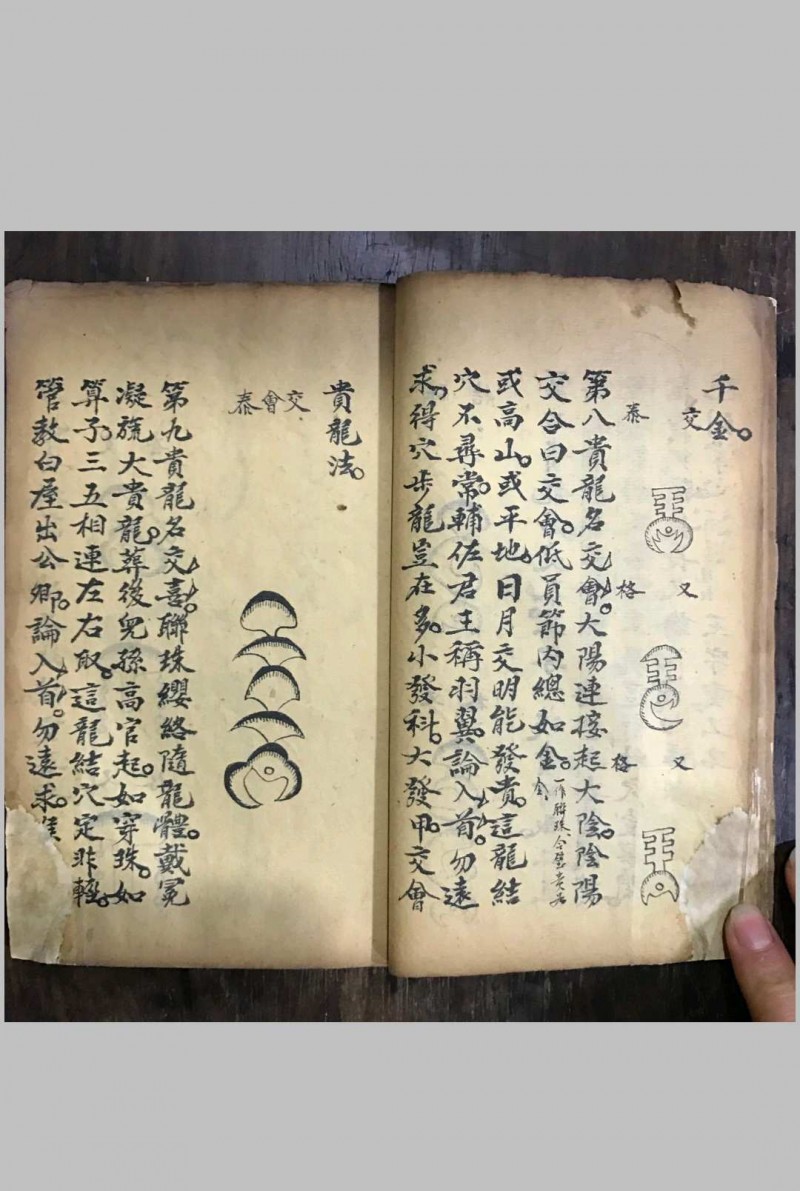 千金。
交泰
又格
又格
第八貴龍名交會。大陽連接起大陰。陰陽
交合曰交會。低員節內總如金。一作聯珠合璧貴
或高山。或平地。日月交明能發貴。這龍結
穴不尋常。輔佐君王稱羽翼。論入首。勿遠
求。得穴步龍豈在多。小發科。大發甲。交會
貴龍法。
交會泰
第九貴龍名交喜。聯珠纓絡隨龍體。戴冕
凝旒大貴龍。葬後兒孫高官起。如穿珠。如
算子。三五相連左右取。這龍結穴定非輕。
管教白屋出公卿。論入首。勿遠求。